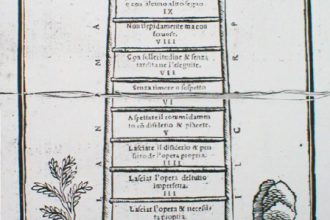 con alcuno altro segno.
IX
Non tepidamente ma con
feruore.
VIII
Con sollecitudine & senza
tarditate l'eseguite.
VII
Senza timore o sospetto
VI
Aspettate il comandamen
to cō disiderio & piacere.
V
Lasciate il disiderio & pro
fitto de l'opera propria.
IIII
Lasciat l'opera del tutto
imperfetta.
III
Lasciat l'opera & necessi
ta propria.